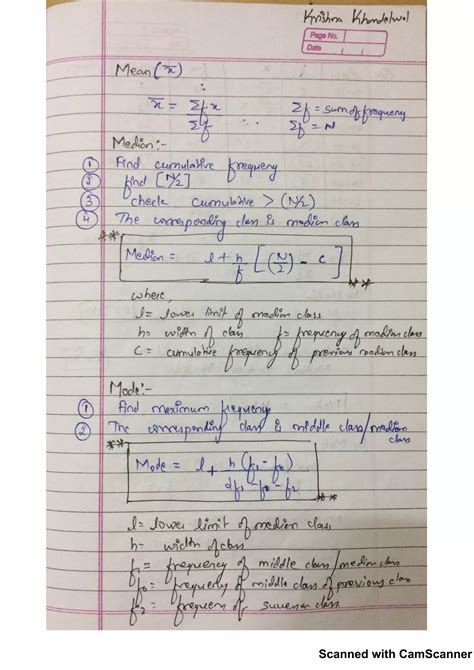 Krishna Khandelwal
Page No.
Date
Mean (x̄)
∴
x̄ = Σfx / Σf
Σf = sum of frequency
∴ Σf = N
Median:-
① Find cumulative frequency
② find [N/2]
③ check cumulative > (N/2)
④ The corresponding class is median class
Median = l + h/f [(N/2) - c]
where,
l = lower limit of median class
h = width of class f = frequency of median class
C = cumulative frequency of previous median class
Mode:-
① Find maximum frequency
② The corresponding class is middle class/median class
Mode = l + h(f₁ - f₀) / 2f₁ - f₀ - f₂
l = lower limit of median class
h = width of class
f₁ = frequency of middle class/median class
f₀ = frequency of middle class of previous class
f₂ = frequency of succesor class
Scanned with CamScanner